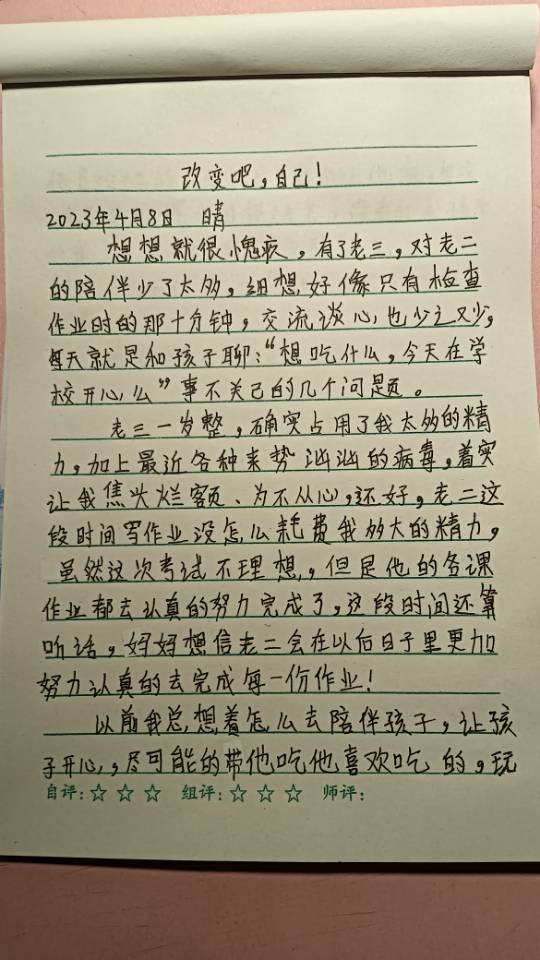 改变吧,自己!
2023年4月8日 晴
想想就很愧疚,有了老三,对老二
的陪伴少了太多,细想好像只有检查
作业时的那十分钟,交流谈心也少之又少,
每天就是和孩子聊:“想吃什么,今天在学
校开心么”事不关己的几个问题。
老三一岁整,确实占用了我太多的精
力,加上最近各种来势汹汹的病毒,着实
让我焦头烂额、为不从心,还好,老二这
段时间写作业没怎么耗费我多大的精力,
虽然这次考试不理想,但是他的各课
作业都去认真的努力完成了,这段时间还算
听话,妈妈想信老二会在以后日子里更加
努力认真的去完成每一份作业!
以前我总想着怎么去陪伴孩子,让孩
子开心,尽可能的带他吃他喜欢吃的,玩
自评:☆☆☆ 组评:☆☆☆ 师评: